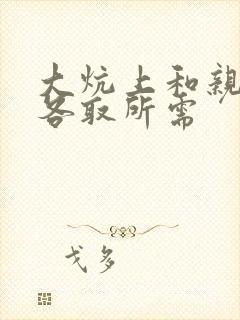 大炕上和亲
各取所需
戈多